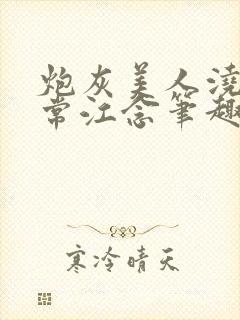 炮灰美人浇
常江念笔趣
寒冷晴天